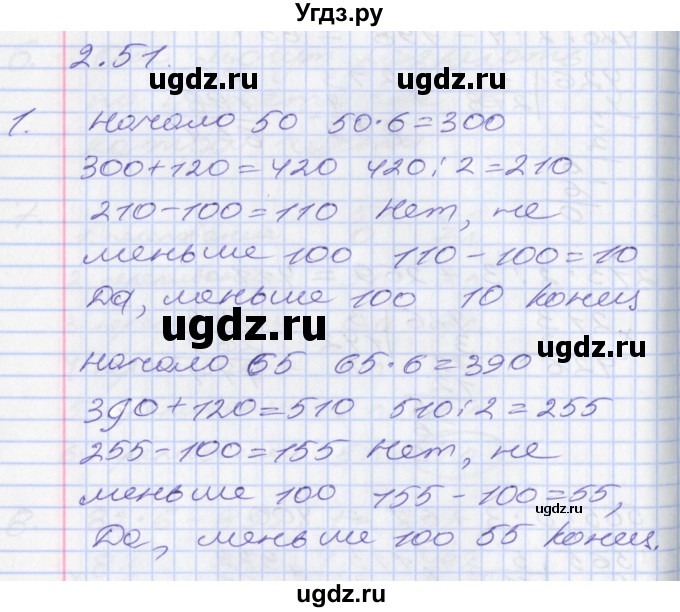 Угдз.ру
2.51.
ugdz.ru ugdz.ru
1. Начало 50 50·6=300
300+120=420 420:2=210
210-100=110 Нет, не
меньше 100 110-100=10
Да, меньше 100 10 конец
ugdz.ru
ugdz.ru
Начало 65 65·6=390
390+120=510 510:2=255
255-100=155 Нет, не
меньше 100 155-100=55,
ugdz.ru
Да, меньше 100 55 конец.
ugdz.ru